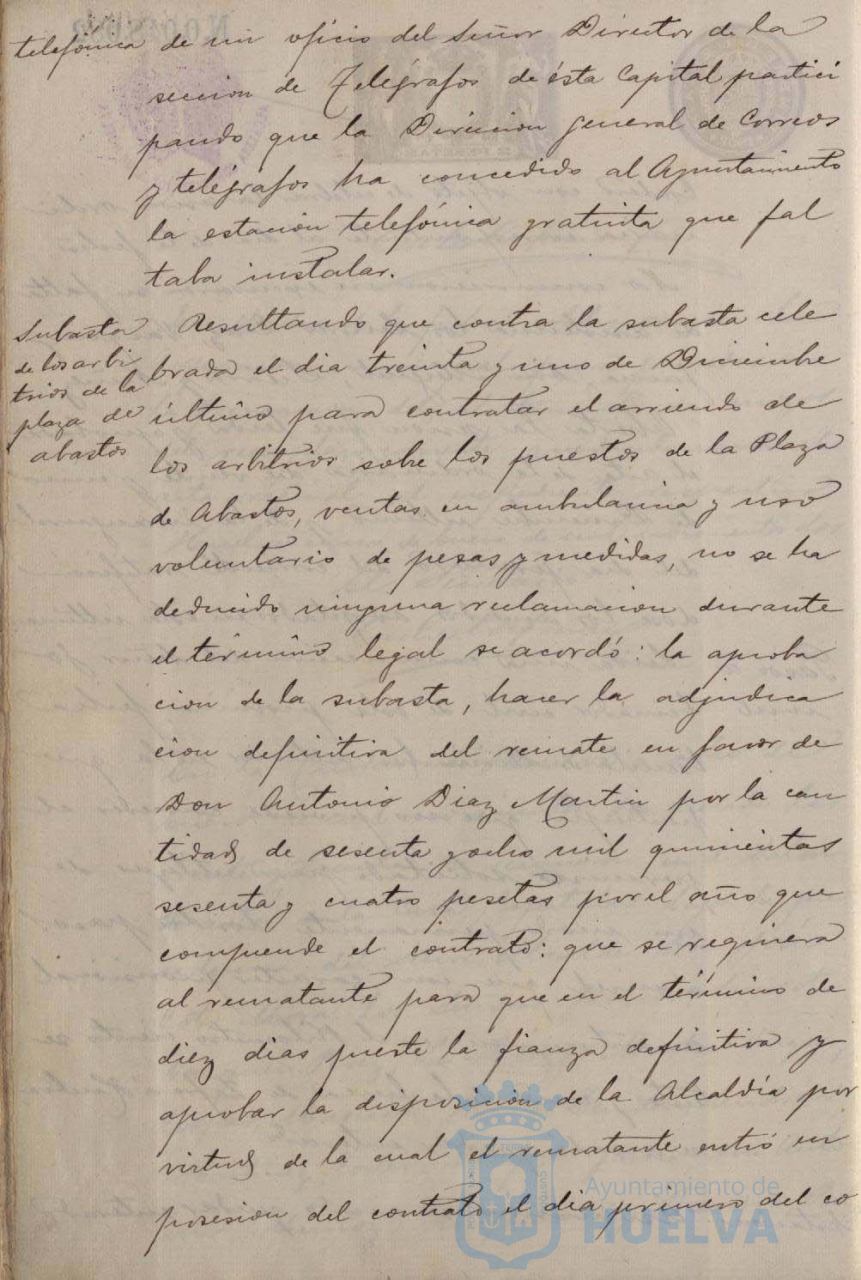 telefónica de un oficio del Señor Director de la
seccion de Telégrafos de ésta Capital partici
pando que la Direccion general de Correos
y telégrafos ha concedido al Ayuntamiento
la estacion telefónica gratuita que fal
taba instalar.
Subasta
de los arbi
trios de la
plaza de
abastos
Resultando que contra la subasta cele
brada el dia treinta y uno de Diciembre
último para contratar el arriendo de
los arbitrios sobre los puestos de la Plaza
de Abastos, ventas en ambulancia y uso
voluntario de pesas y medidas, no se ha
deducido ninguna reclamacion durante
el término legal se acordó: la aproba
cion de la subasta, hacer la adjudica
cion definitiva del remate en favor de
Don Antonio Diaz Martin por la can
tidad de sesenta y ocho mil quinientas
sesenta y cuatro pesetas por el año que
comprende el contrato: que se requiera
al rematante para que en el término de
diez dias preste la fianza definitiva y
aprobar la disposicion de la Alcaldía por
virtud de la cual el rematante entró en
posesion del contrato el dia primero del co
Ayuntamiento de
HUELVA